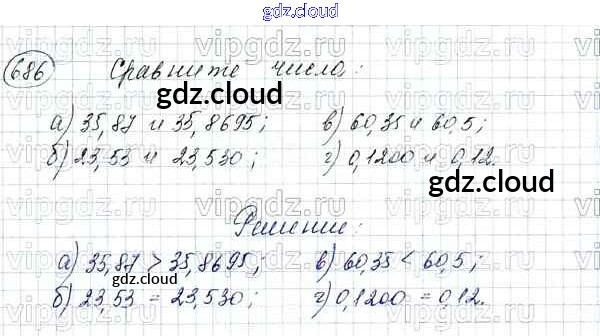 gdz.cloud
686 Сравните числа:
gdz.cloud
а) 35,87 и 35,8695; в) 60,35 и 60,5;
б) 23,53 и 23,530; г) 0,1200 и 0,12.
gdz.cloud
Решение:
а) 35,87 > 35,8695; в) 60,35 < 60,5;
gdz.cloud
б) 23,53 = 23,530; г) 0,1200 = 0,12.